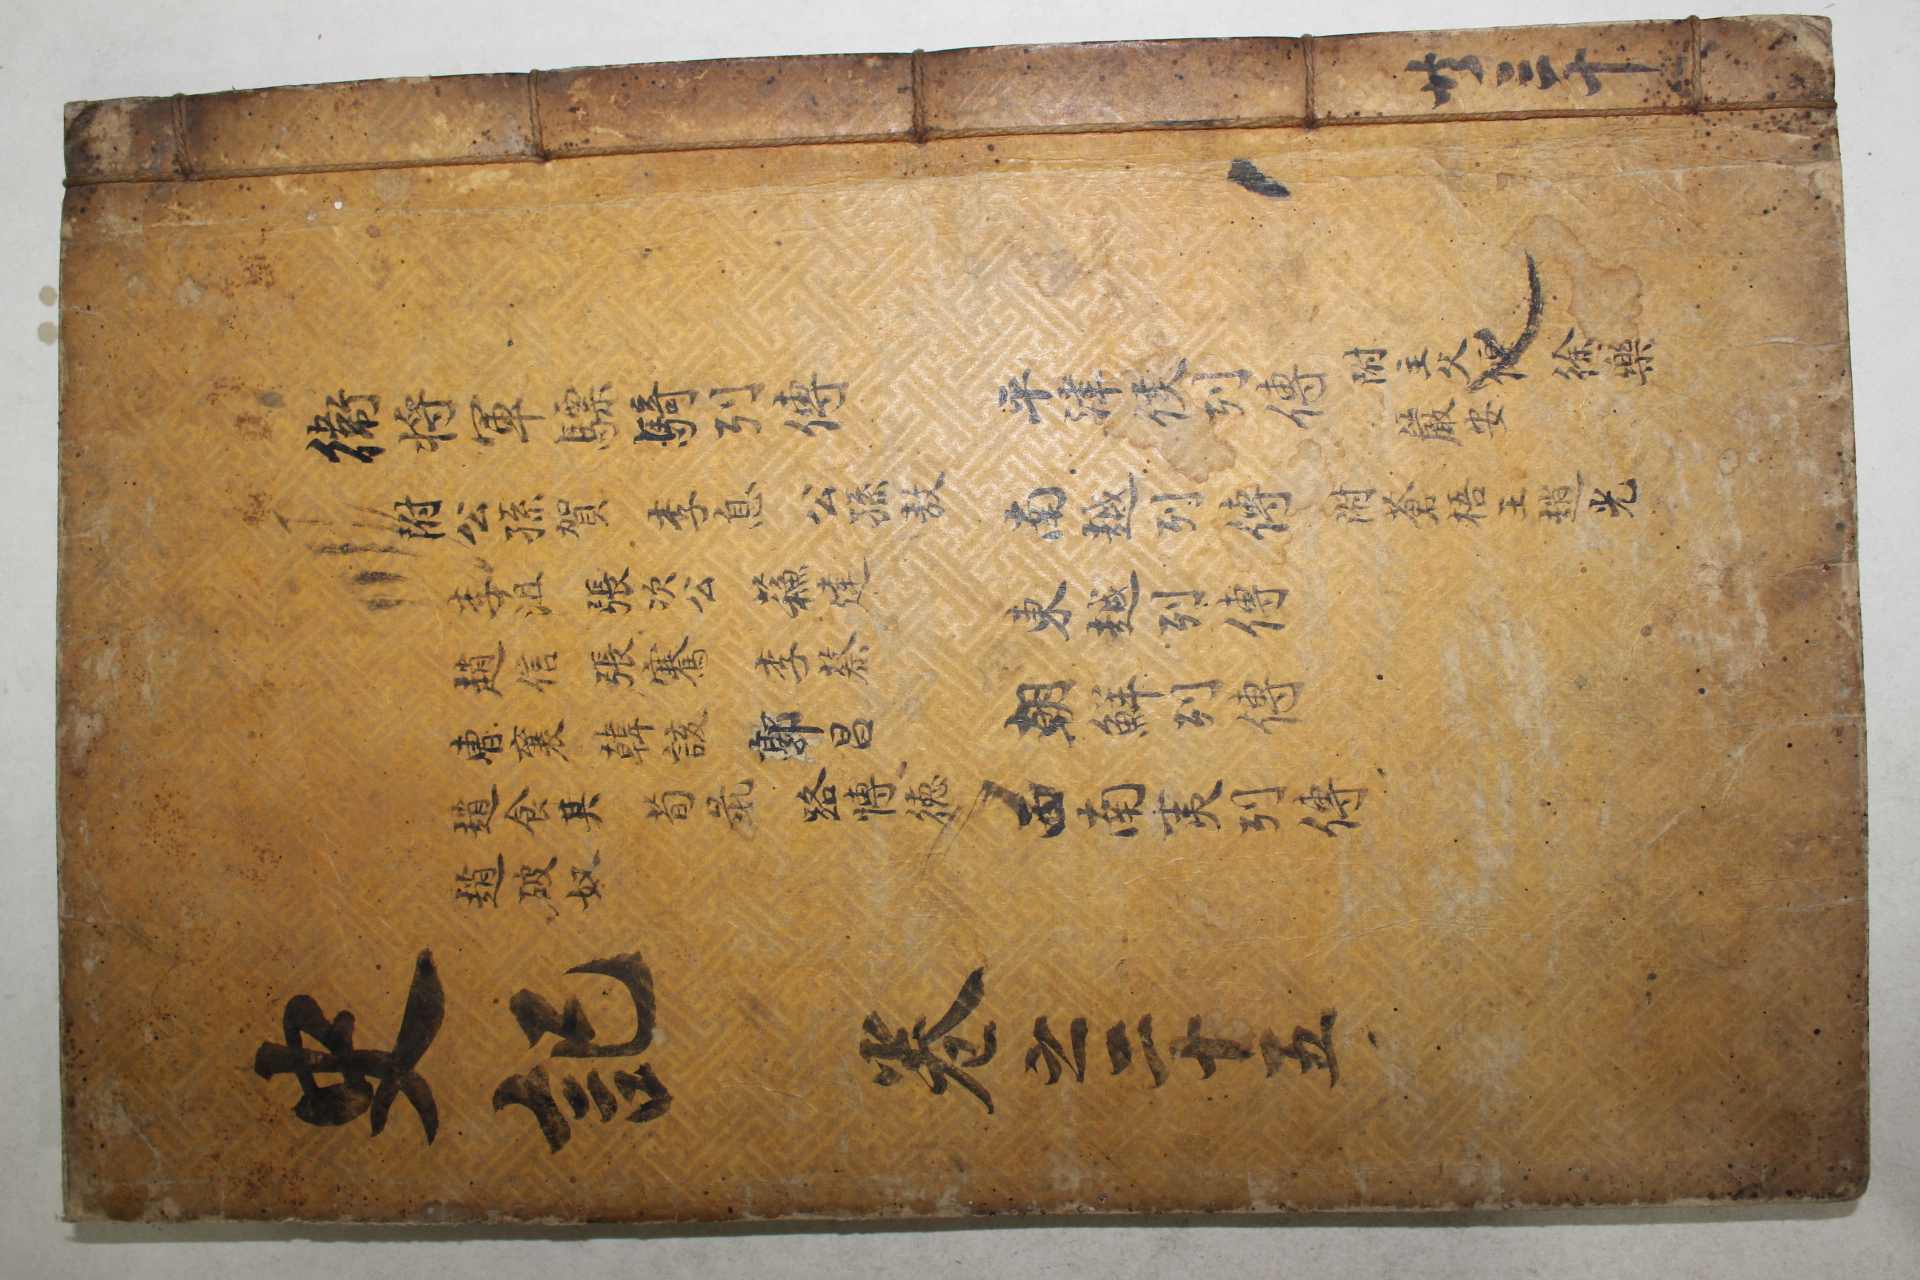 共三十
衛將軍驃騎列傳
附公孫賀 李息 公孫敖
李沮 張次公 蘇建
趙信 張騫 李蔡
曹襄 韓說 郭昌
趙食其 荀彘 路愽德
趙破奴
平津侯列傳 附主父偃 徐樂
嚴安
南越列傳 附蒼梧王趙光
東越列傳
朝鮮列傳
西南夷列傳
史記 卷之二十五